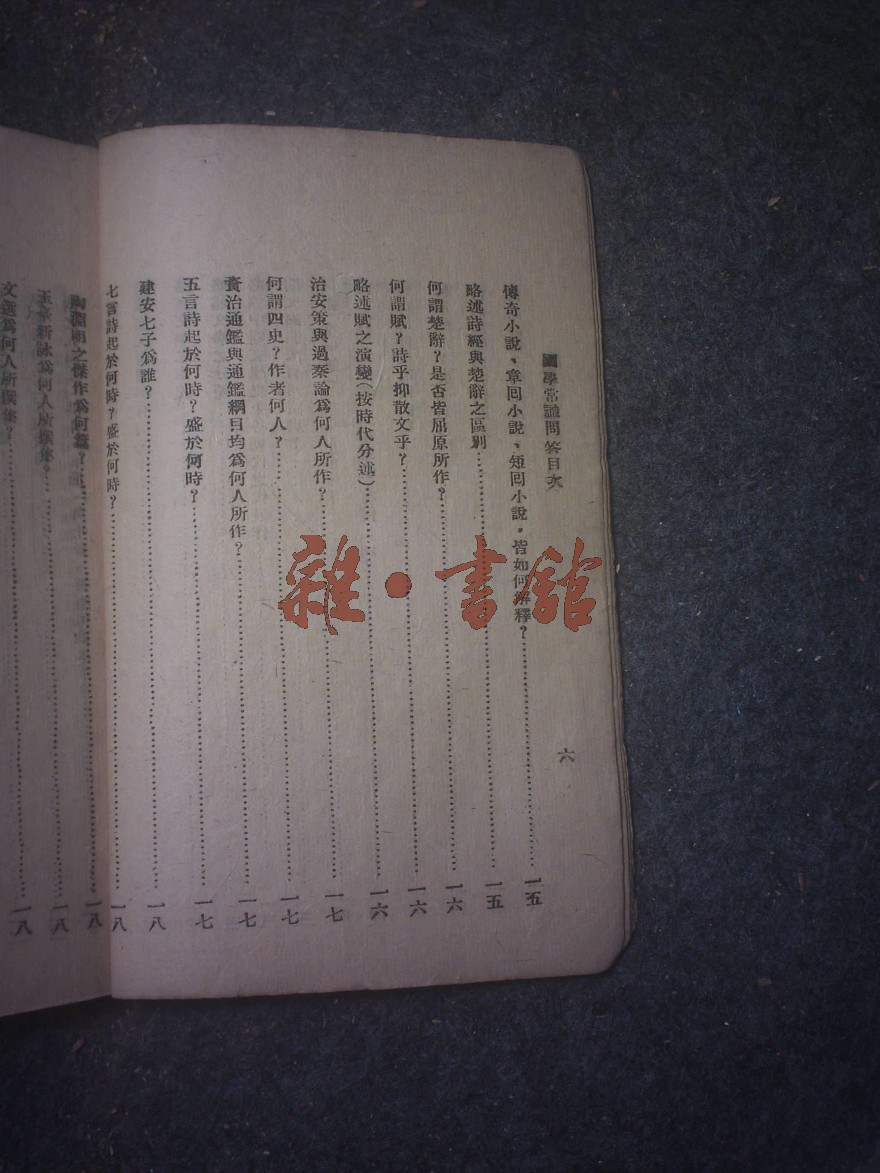 國學常識問答目次
六
傳奇小說、章回小說、短回小說。皆如何解釋?……一五
略述詩經與楚辭之區別……一五
何謂楚辭?是否皆屈原所作?……一六
何謂賦?詩乎抑散文乎?……一六
略述賦之演變(按時代分述)……一六
治安策與過秦論爲何人所作?……一七
何謂四史?作者何人?……一七
資治通鑑與通鑑綱目均爲何人所作?……一七
五言詩起於何時?盛於何時?……一七
建安七子爲誰?……一八
七言詩起於何時?盛於何時?……一八
陶淵明之傑作爲何篇?……一八
玉臺新詠爲何人所撰集?……一八
文選爲何人所撰集?……一八
雜·書館